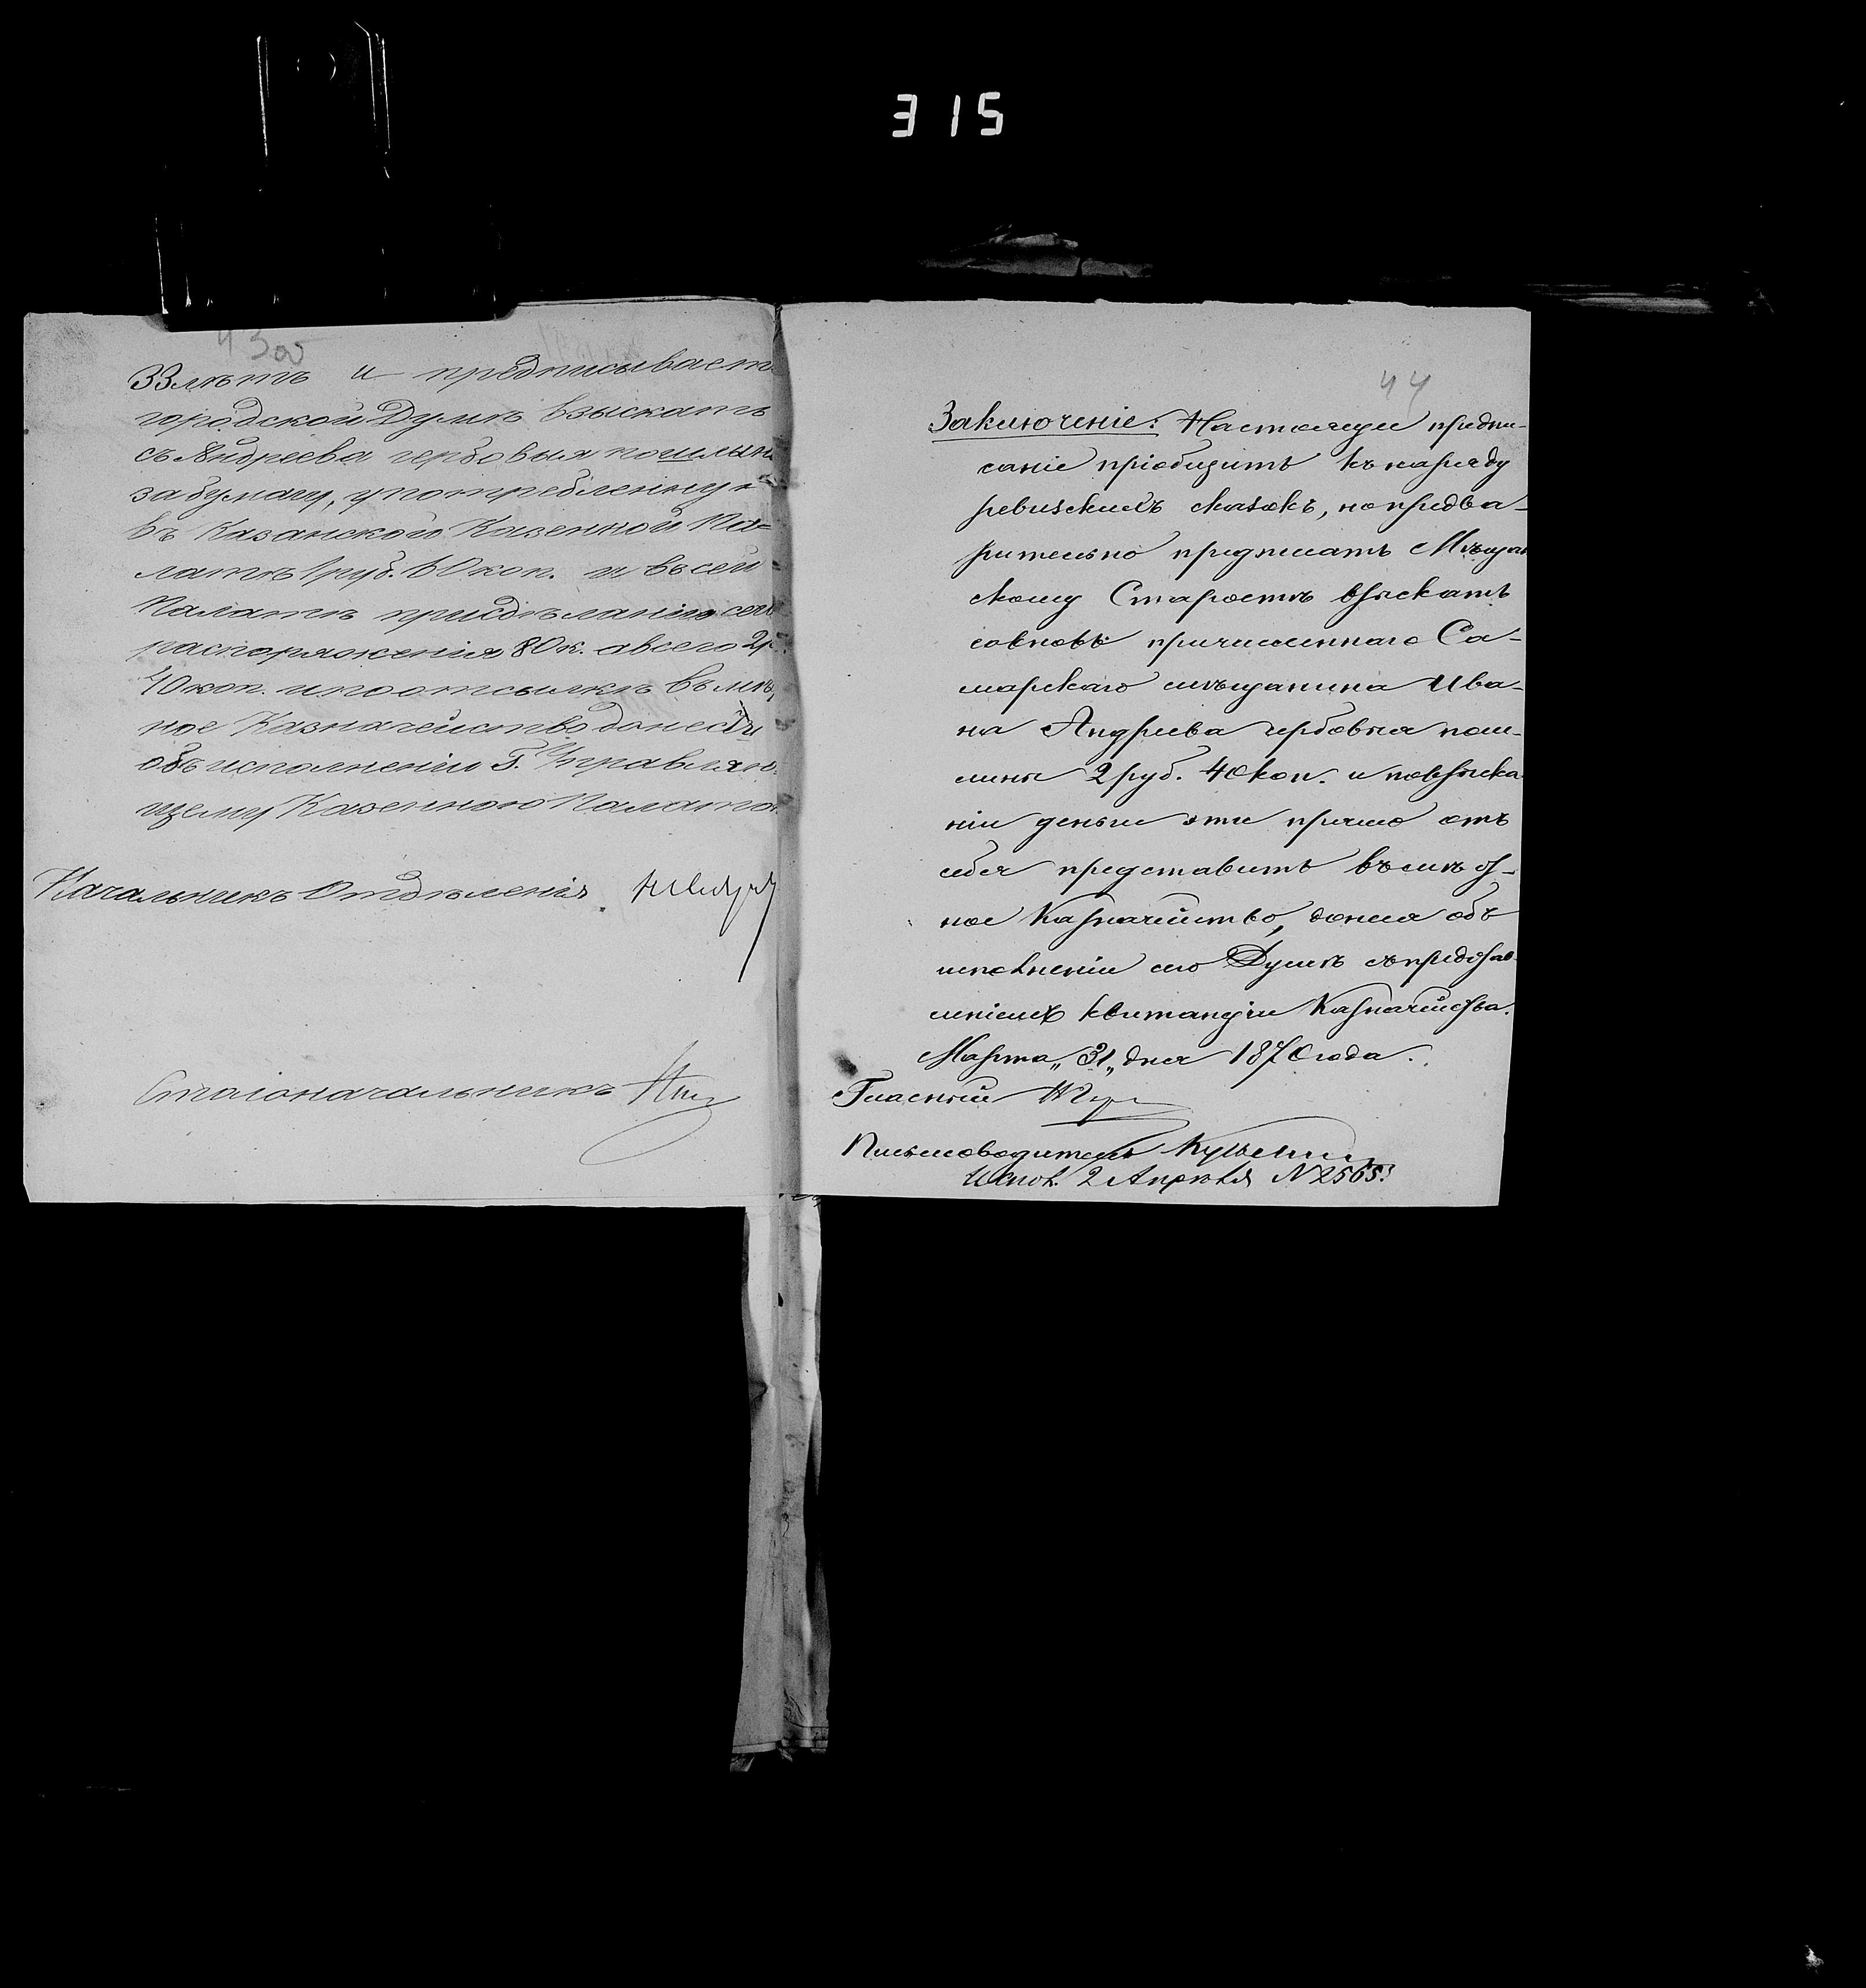 315
43об
33 лѣтъ и предписываетъ
городской Думѣ взыскать
съ Андреева гербовыя пошлины
за бумагу, употребленную
въ Казанской Казенной Па=
латѣ 1 руб. 60 коп. и въ сей
Палатѣ при сдѣланіи сего
распоряженія 80 к. а всего 2 р.
40 коп. и по отсылкѣ въ мѣст
ное Казначейство донести
объ исполненіи Г. Управляю
щему Казенною Палатою.
Начальникъ Отдѣленія
Столоначальникъ
44
Заключеніе: Настоящее предпи-
саніе пріобщить къ наряду
ревизскихъ сказокъ, но предва-
рительно предписать Мѣщан
скому Старостѣ взыскать
со вновь причисленнаго Са-
марскаго мѣщанина Ива-
на Андреева гербовыя пош-
лины 2 руб. 40 коп. и по взыска
ніи деньги эти прямо отъ
себя представить въ мѣст-
ное Казначейство, донеся объ
исполненіи сего Думѣ съ представ
леніемъ квитанціи Казначейства.
Марта „31„ дня 1870 года.
Гласный
Письмоводитель
Испол. 2 Апрѣля N 2565.